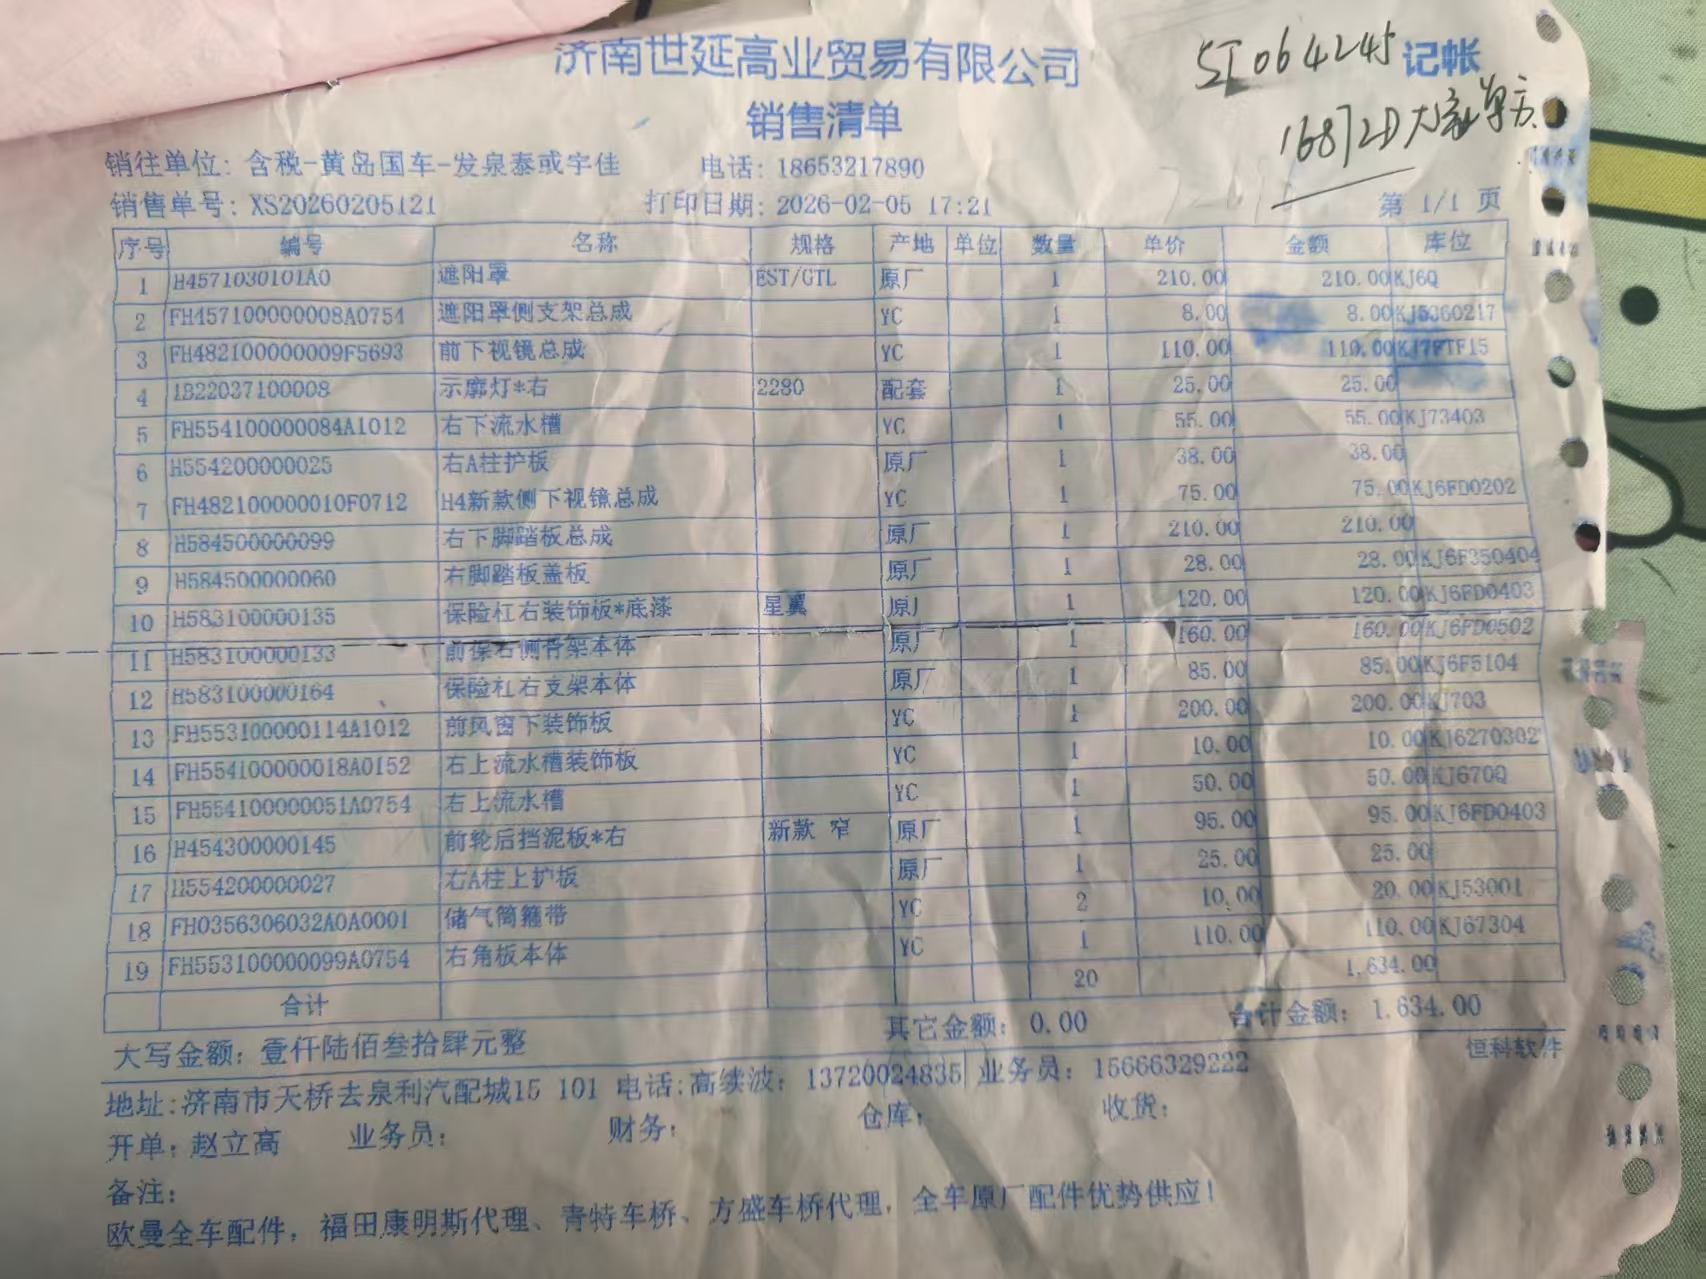 济南世延高业贸易有限公司
记帐
销售清单
销往单位: 含税-黄岛国车-发泉泰或宇佳 电话: 18653217890
销售单号: XS20260205121 打印日期: 2026-02-05 17:21 第 1/1 页
序号 编号 名称 规格 产地 单位 数量 单价 金额 库位
1 H4571030101A0 遮阳罩 EST/GTL 原厂 1 210.00 210.00 KJ6Q
2 FH457100000008A0754 遮阳罩侧支架总成 YC 1 8.00 8.00 KJ5360217
3 FH482100000009F5693 前下视镜总成 YC 1 110.00 110.00 KJ7FTF15
4 1B22037100008 示廓灯*右 2280 配套 1 25.00 25.00
5 FH554100000084A1012 右下流水槽 YC 1 55.00 55.00 KJ73403
6 H554200000025 右A柱护板 原厂 1 38.00 38.00
7 FH482100000010F0712 H4新款侧下视镜总成 YC 1 75.00 75.00 KJ6FD0202
8 H584500000099 右下脚踏板总成 原厂 1 210.00 210.00
9 H584500000060 右脚踏板盖板 原厂 1 28.00 28.00 KJ6F350404
10 H583100000135 保险杠右装饰板*底漆 星翼 原厂 1 120.00 120.00 KJ6FD0403
11 H583100000133 前保右侧骨架本体 原厂 1 160.00 160.00 KJ6FD0502
12 H583100000164 保险杠右支架本体 原厂 1 85.00 85.00 KJ6F5104
13 FH553100000114A1012 前风窗下装饰板 YC 1 200.00 200.00 KJ703
14 FH554100000018A0152 右上流水槽装饰板 YC 1 10.00 10.00 KJ6270302
15 FH554100000051A0754 右上流水槽 YC 1 50.00 50.00 KJ670Q
16 H454300000145 前轮后挡泥板*右 新款 窄 原厂 1 95.00 95.00 KJ6FD0403
17 H554200000027 右A柱上护板 原厂 1 25.00 25.00
18 FH0356306032A0A0001 储气筒箍带 YC 2 10.00 20.00 KJ53001
19 FH553100000099A0754 右角板本体 YC 1 110.00 110.00 KJ67304
合计 20 1,634.00
大写金额: 壹仟陆佰叁拾肆元整 其它金额: 0.00 合计金额: 1,634.00
恒科软件
地址:济南市天桥去泉利汽配城15 101 电话:高续波: 13720024835 业务员: 15666329222
开单: 赵立高 业务员: 财务: 仓库: 收货:
备注:
欧曼全车配件, 福田康明斯代理、青特车桥、方盛车桥代理, 全车原厂配件优势供应!